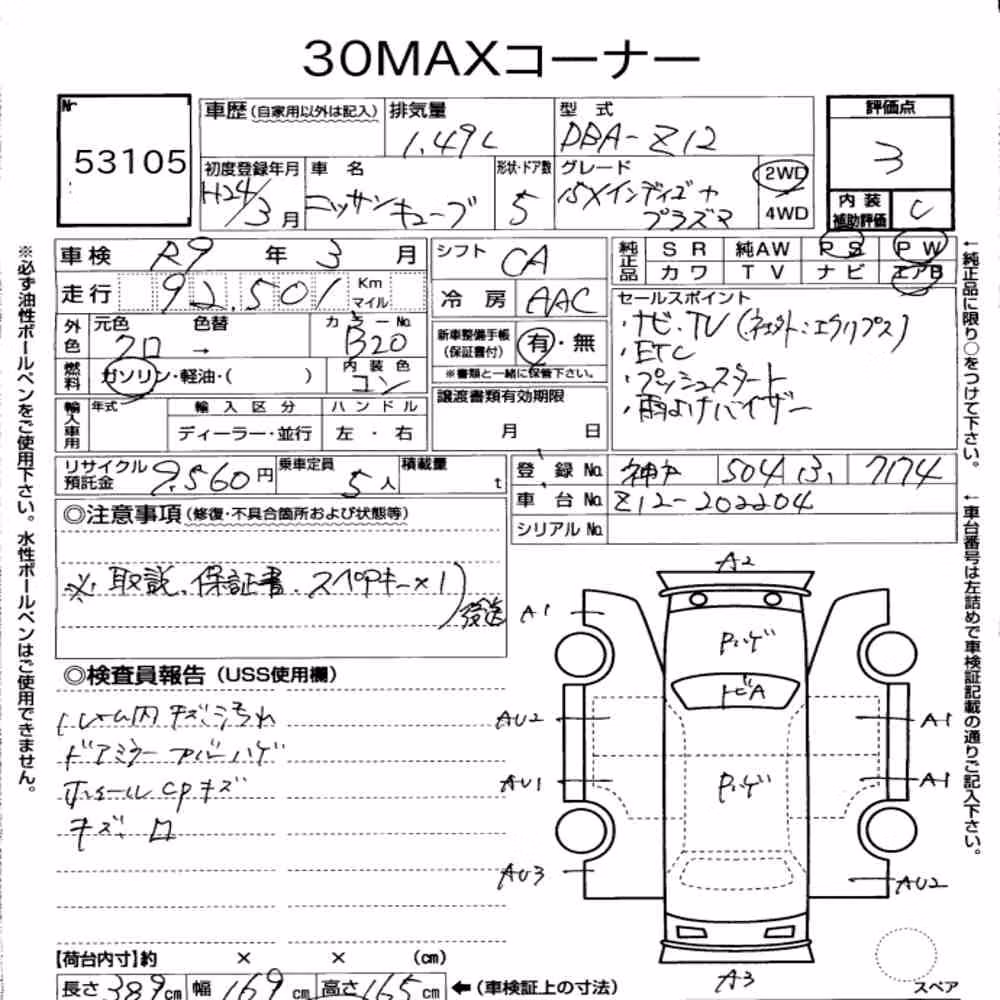 30MAXコーナー
Nr
53105
車歴(自家用以外は記入) 排気量 1.49L 型式 DBA-Z12
評価点 3
初度登録年月 H24/3月 車名 ニッサン キューブ 形状・ドア数 5 グレード 15Xインディゴ+プラズマ 2WD 4WD
内装補助評価 C
車検 R9年 3月 シフト CA 純正品 SR 純AW PS PW
カワ TV ナビ エアB
走行 92,501 Km マイル 冷房 AAC
セールスポイント
・ナビ・TV(社外:エクリプス)
・ETC
・プッシュスタート
・雨よけバイザー
外色 元色 クロ → 色替 カラーNo. B20
新車整備手帳(保証書付) 有・無
※書類と一緒に保管下さい。
燃料 ガソリン・軽油・( ) 内装色 コン
譲渡書類有効期限
月 日
輸入車用 年式 輸入区分 ハンドル
ディーラー・並行 左・右
リサイクル預託金 9,560円 乗車定員 5人 積載量 t
登録No. 神戸 504 わ 7174
車台No. Z12-202204
シリアルNo.
◎注意事項(修復・不具合箇所および状態等)
※、取説、保証書、スペアキー×1)発送
◎検査員報告(USS使用欄)
トリム内 キズ汚れ
ドアミラーカバーハゲ
ホイールCPキズ
キズ
A2
A1
Pハゲ
トビA
AU2
A1
AU1
Pハゲ
A1
AU3
AU2
A3
スペア
【荷台内寸】約 × × (cm)
長さ 389cm 幅 169cm 高さ 165cm ←(車検証上の寸法)
※必ず油性ボールペンをご使用下さい。水性ボールペンはご使用できません。
←純正品に限り○をつけて下さい。
←車台番号は左詰めで車検証記載の通りご記入下さい。